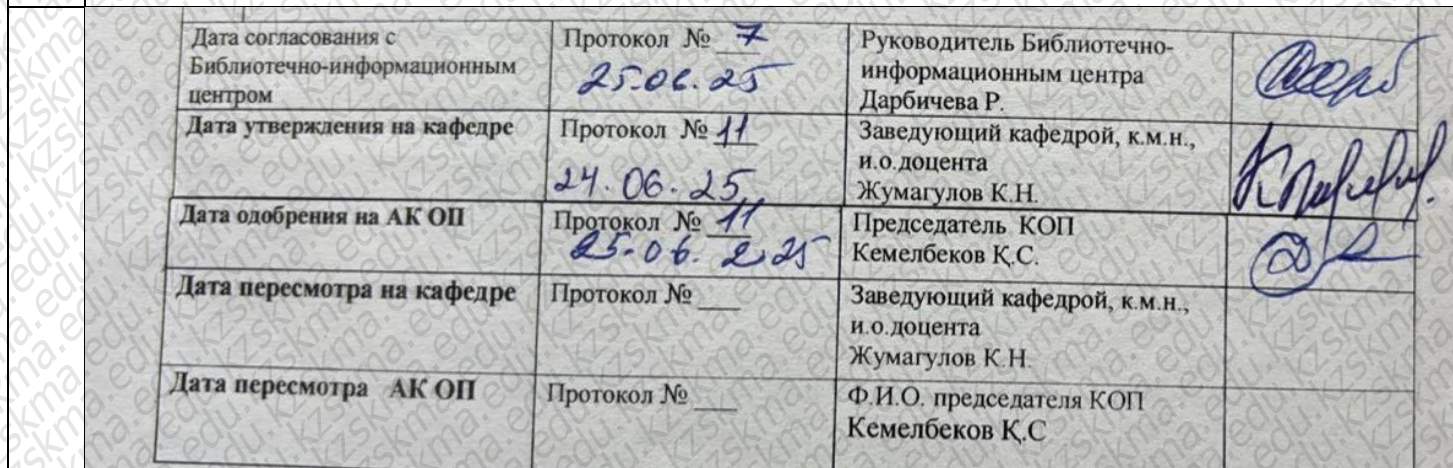 Дата согласования с
Библиотечно-информационным
центром
Протокол № 7
25.06.25
Руководитель Библиотечно-
информационным центра
Дарбичева Р.
Дата утверждения на кафедре
Протокол № 11
24.06.25
Заведующий кафедрой, к.м.н.,
и.о.доцента
Жумагулов К.Н.
Дата одобрения на АК ОП
Протокол № 11
25.06.2025
Председатель КОП
Кемелбеков Қ.С.
Дата пересмотра на кафедре
Протокол № ___
Заведующий кафедрой, к.м.н.,
и.о.доцента
Жумагулов К.Н.
Дата пересмотра АК ОП
Протокол № ___
Ф.И.О. председателя КОП
Кемелбеков Қ.С